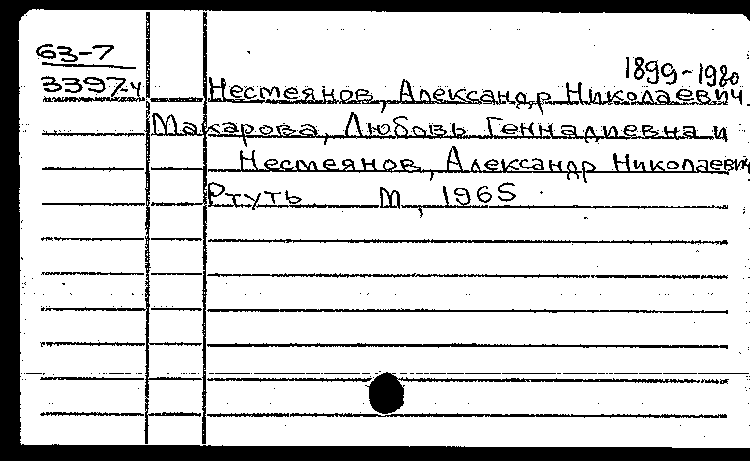 63-7
1899-1980
3397-4 Несмеянов, Александр Николаевич.
Макарова, Любовь Геннадиевна и
Несмеянов, Александр Николаевич
Ртуть М, 1965